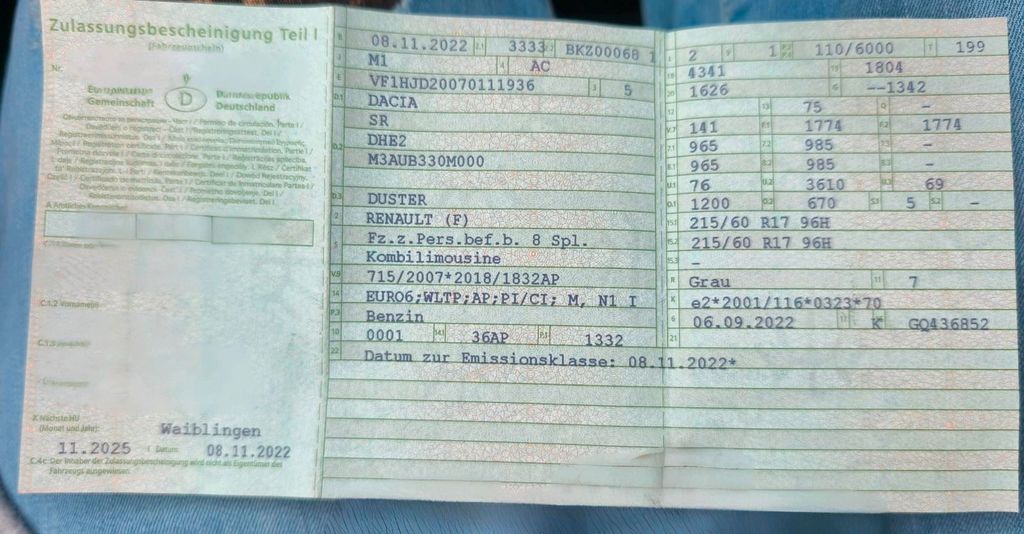 Zulassungsbescheinigung Teil I
(Fahrzeugschein)
Nr.
Europäische Gemeinschaft
D
Bundesrepublik Deutschland
C.1.2
C.1.3
X Nächste HU
(Monat und Jahr):
Waiblingen
11.2025
I Datum:
08.11.2022
C.4c: Der Inhaber der Zulassungsbescheinigung wird nicht als Eigentümer des
Fahrzeugs ausgewiesen.
B 08.11.2022 2.1 3333 2.2 BKZ00068 1
J M1 4 AC
E VF1HJD20070111936 3 5
D.1 DACIA
SR
D.2 DHB2
M3AUB330M000
D.3 DUSTER
2 RENAULT (F)
5 Fz.z.Pers.bef.b. 8 Spl.
Kombilimousine
V.9 715/2007*2018/1832AP
14 EURO6;WLTP;AP;PI/CI; M, N1 I
P.3 Benzin
10 0001 14.1 36AP P.1 1332
22 Datum zur Emissionsklasse: 08.11.2022*
L 2 9 1 110/6000 T 199
18 4341 19 1804
20 1626 G --1342
12 13 75 Q -
V.7 141 F.1 1774 F.2 1774
7.1 965 7.2 985 7.3 -
8.1 965 8.2 985 8.3 -
U.1 76 U.2 3610 U.3 69
O.1 1200 O.2 670 S.1 5 S.2 -
15.1 215/60 R17 96H
15.2 215/60 R17 96H
15.3 -
R Grau 11 7
K e2*2001/116*0323*70
6 06.09.2022 17 K GQ436852
21